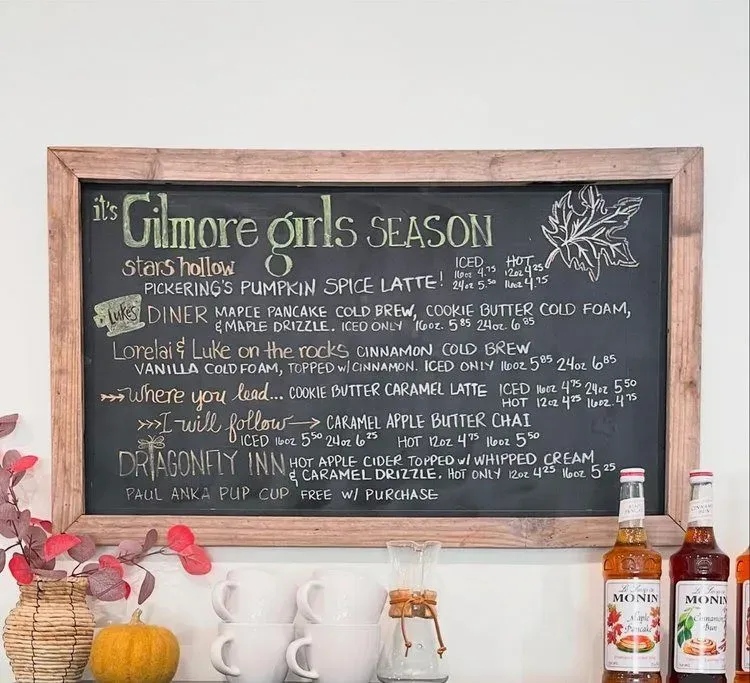 it's Gilmore girls SEASON
stars hollow
PICKERING'S PUMPKIN SPICE LATTE!
ICED HOT
16oz 4.75 12oz 4.25
24oz 5.50 16oz 4.75
Luke's DINER MAPLE PANCAKE COLD BREW, COOKIE BUTTER COLD FOAM,
& MAPLE DRIZZLE. ICED ONLY 16oz. 5.85 24oz. 6.85
Lorelai & Luke on the rocks CINNAMON COLD BREW
VANILLA COLD FOAM, TOPPED w/ CINNAMON. ICED ONLY 16oz 5.85 24oz 6.85
Where you lead... COOKIE BUTTER CARAMEL LATTE ICED 16oz 4.75 24oz 5.50
HOT 12oz 4.25 16oz. 4.75
I will follow CARAMEL APPLE BUTTER CHAI
ICED 16oz 5.50 24oz 6.25 HOT 12oz 4.75 16oz 5.50
DRAGONFLY INN HOT APPLE CIDER TOPPED w/ WHIPPED CREAM
& CARAMEL DRIZZLE. HOT ONLY 12oz 4.25 16oz 5.25
PAUL ANKA PUP CUP FREE W/ PURCHASE
MONIN
Maple
Pancake
MONIN
Cinnamon
Bun